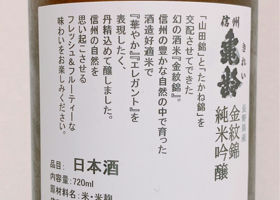 信州
亀齢
きれい
長野県産
金紋錦
純米吟醸
「山田錦」と「たかね錦」を
交配させてできた
幻の酒米『金紋錦』。
信州の豊かな自然の中で育った
酒造好適米で
『華やか』『エレガント』を
表現したく、
丹精込めて醸しました。
信州の自然を
思い起こさせる
フレッシュ&フルーティーな
味わいをお楽しみください。
品目: 日本酒
内容量: 720ml
原材料名: 米・米麹